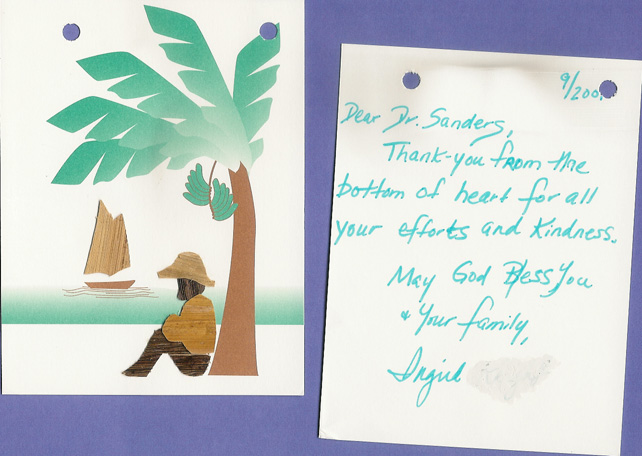 9/200
Dear Dr. Sanders,
Thank-you from the
bottom of heart for all
your efforts and Kindness.
May God Bless You
& Your family,
Ingrid